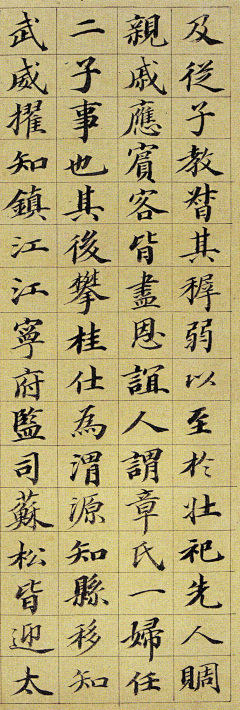 及從子教督其穉弱以至於壯祀先人賙
親戚應賓客皆盡恩誼人謂章氏一婦任
二子事也其後攀桂仕為渭源知縣移知
武威擢知鎮江江寧府監司蘇松皆迎太